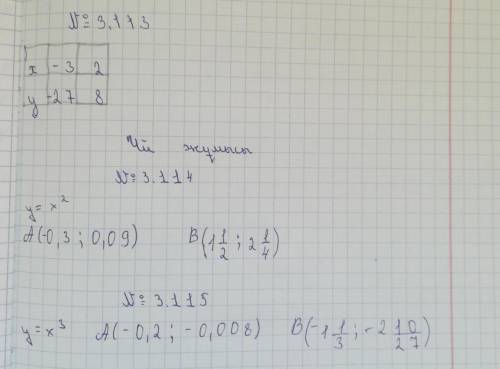 № 3.113
x -3 2
y -27 8
Үй жұмысы
№ 3.114
y = x²
A(-0,3 ; 0,09) B(1 1/2 ; 2 1/4)
№ 3.115
y = x³ A(-0,2 ; -0,008) B(-1 1/3 ; -2 10/27)